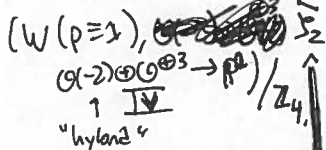 (W(P≡1), ζ̂₂
O(-2)⊕O^{⊕3} → P^1)/ℤ₄,
↑ IV
"hyland"